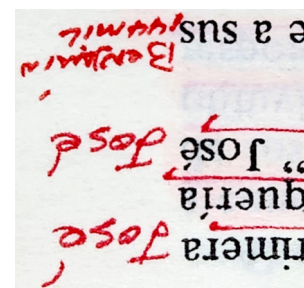 rimera José
quería
” José José
e a sus Benjamín